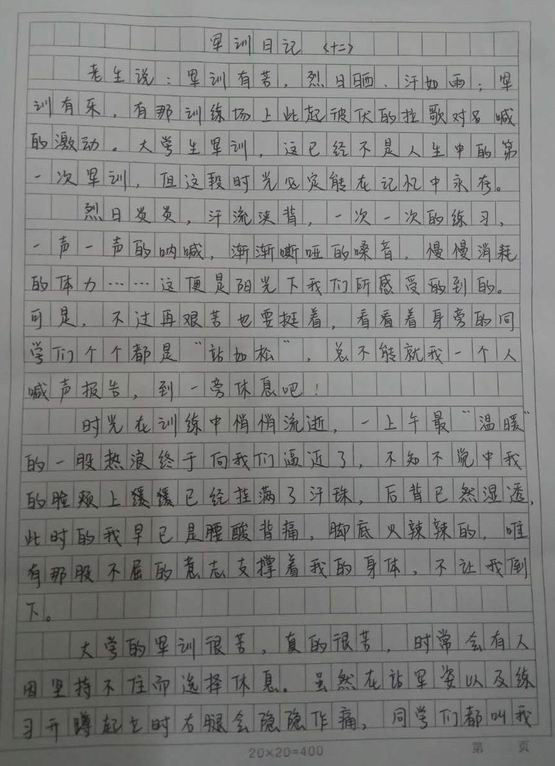 军训日记（十二）
老生说：军训有苦，烈日晒、汗如雨；军
训有乐，有那训练场上此起彼伏的拉歌对名喊
的激动。大学生军训，这已经不是人生中的第
一次军训，但这段时光必定能在记忆中永存。
烈日炎炎，汗流浃背，一次一次的练习，
一声一声的呐喊，渐渐嘶哑的嗓音，慢慢消耗
的体力……这便是阳光下我们所感受的到的。
可是，不过再艰苦也要挺着，看看着身旁的同
学们个个都是“站如松”，总不能就我一个人
喊声报告，到一旁休息吧！
时光在训练中悄悄流逝，一上午最“温暖”
的一股热浪终于向我们逼近了，不知不觉中我
的脸颊上缓缓已经挂满了汗珠，后背已然湿透，
此时的我早已是腰酸背痛，脚底火辣辣的，唯
有那股不屈的意志支撑着我的身体，不让我倒
下。
大学的军训很苦，真的很苦，时常会有人
因坚持不住而选择休息。虽然在站军姿以及练
习开蹲起立时右腿会隐隐作痛，同学们都叫我
20×20=400
第 页